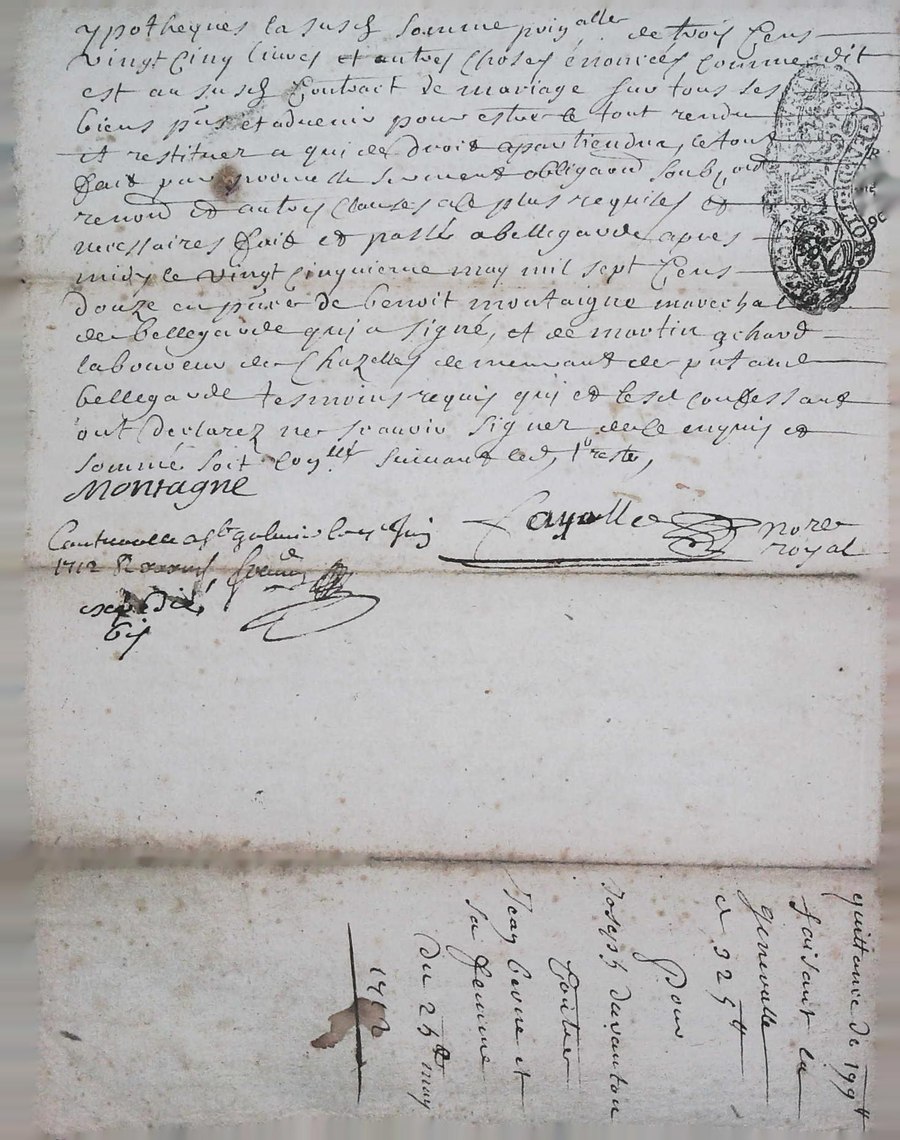 ypotheques la susd somme prin^alle de trois Cens
vingt Cinq livres et autres choses énoncées comme dit
est au susd Contract de mariage sur tous ses
biens p^ns et advenir pour estre le tout rendu
et restituer a qui de droit apartiendra, ce tout
fait par serment obligaon soubz^on
renon et autres clauses a ce plus requises et
necessaires fait et passé a bellegarde apres
midy le vingt cinquieme may mil sept Cens
douze en p^nce de benoit montaigne marechal
de bellegarde qui a signé, et de martin achard
laboureur de Chazelles de
bellegarde tesmoins requis qui et led confessant
ont declarez ne scavoir signer de ce enquis et
sommé soit suivant led,
Montagne
Cayolle no^re
royal
Controolle a juin
1712
expedié
quittance de 199^tt
faisant la
generalle
de 325^tt
Pour
Joseph
Contre
Jean et
sa femme
du 25^e may
1712